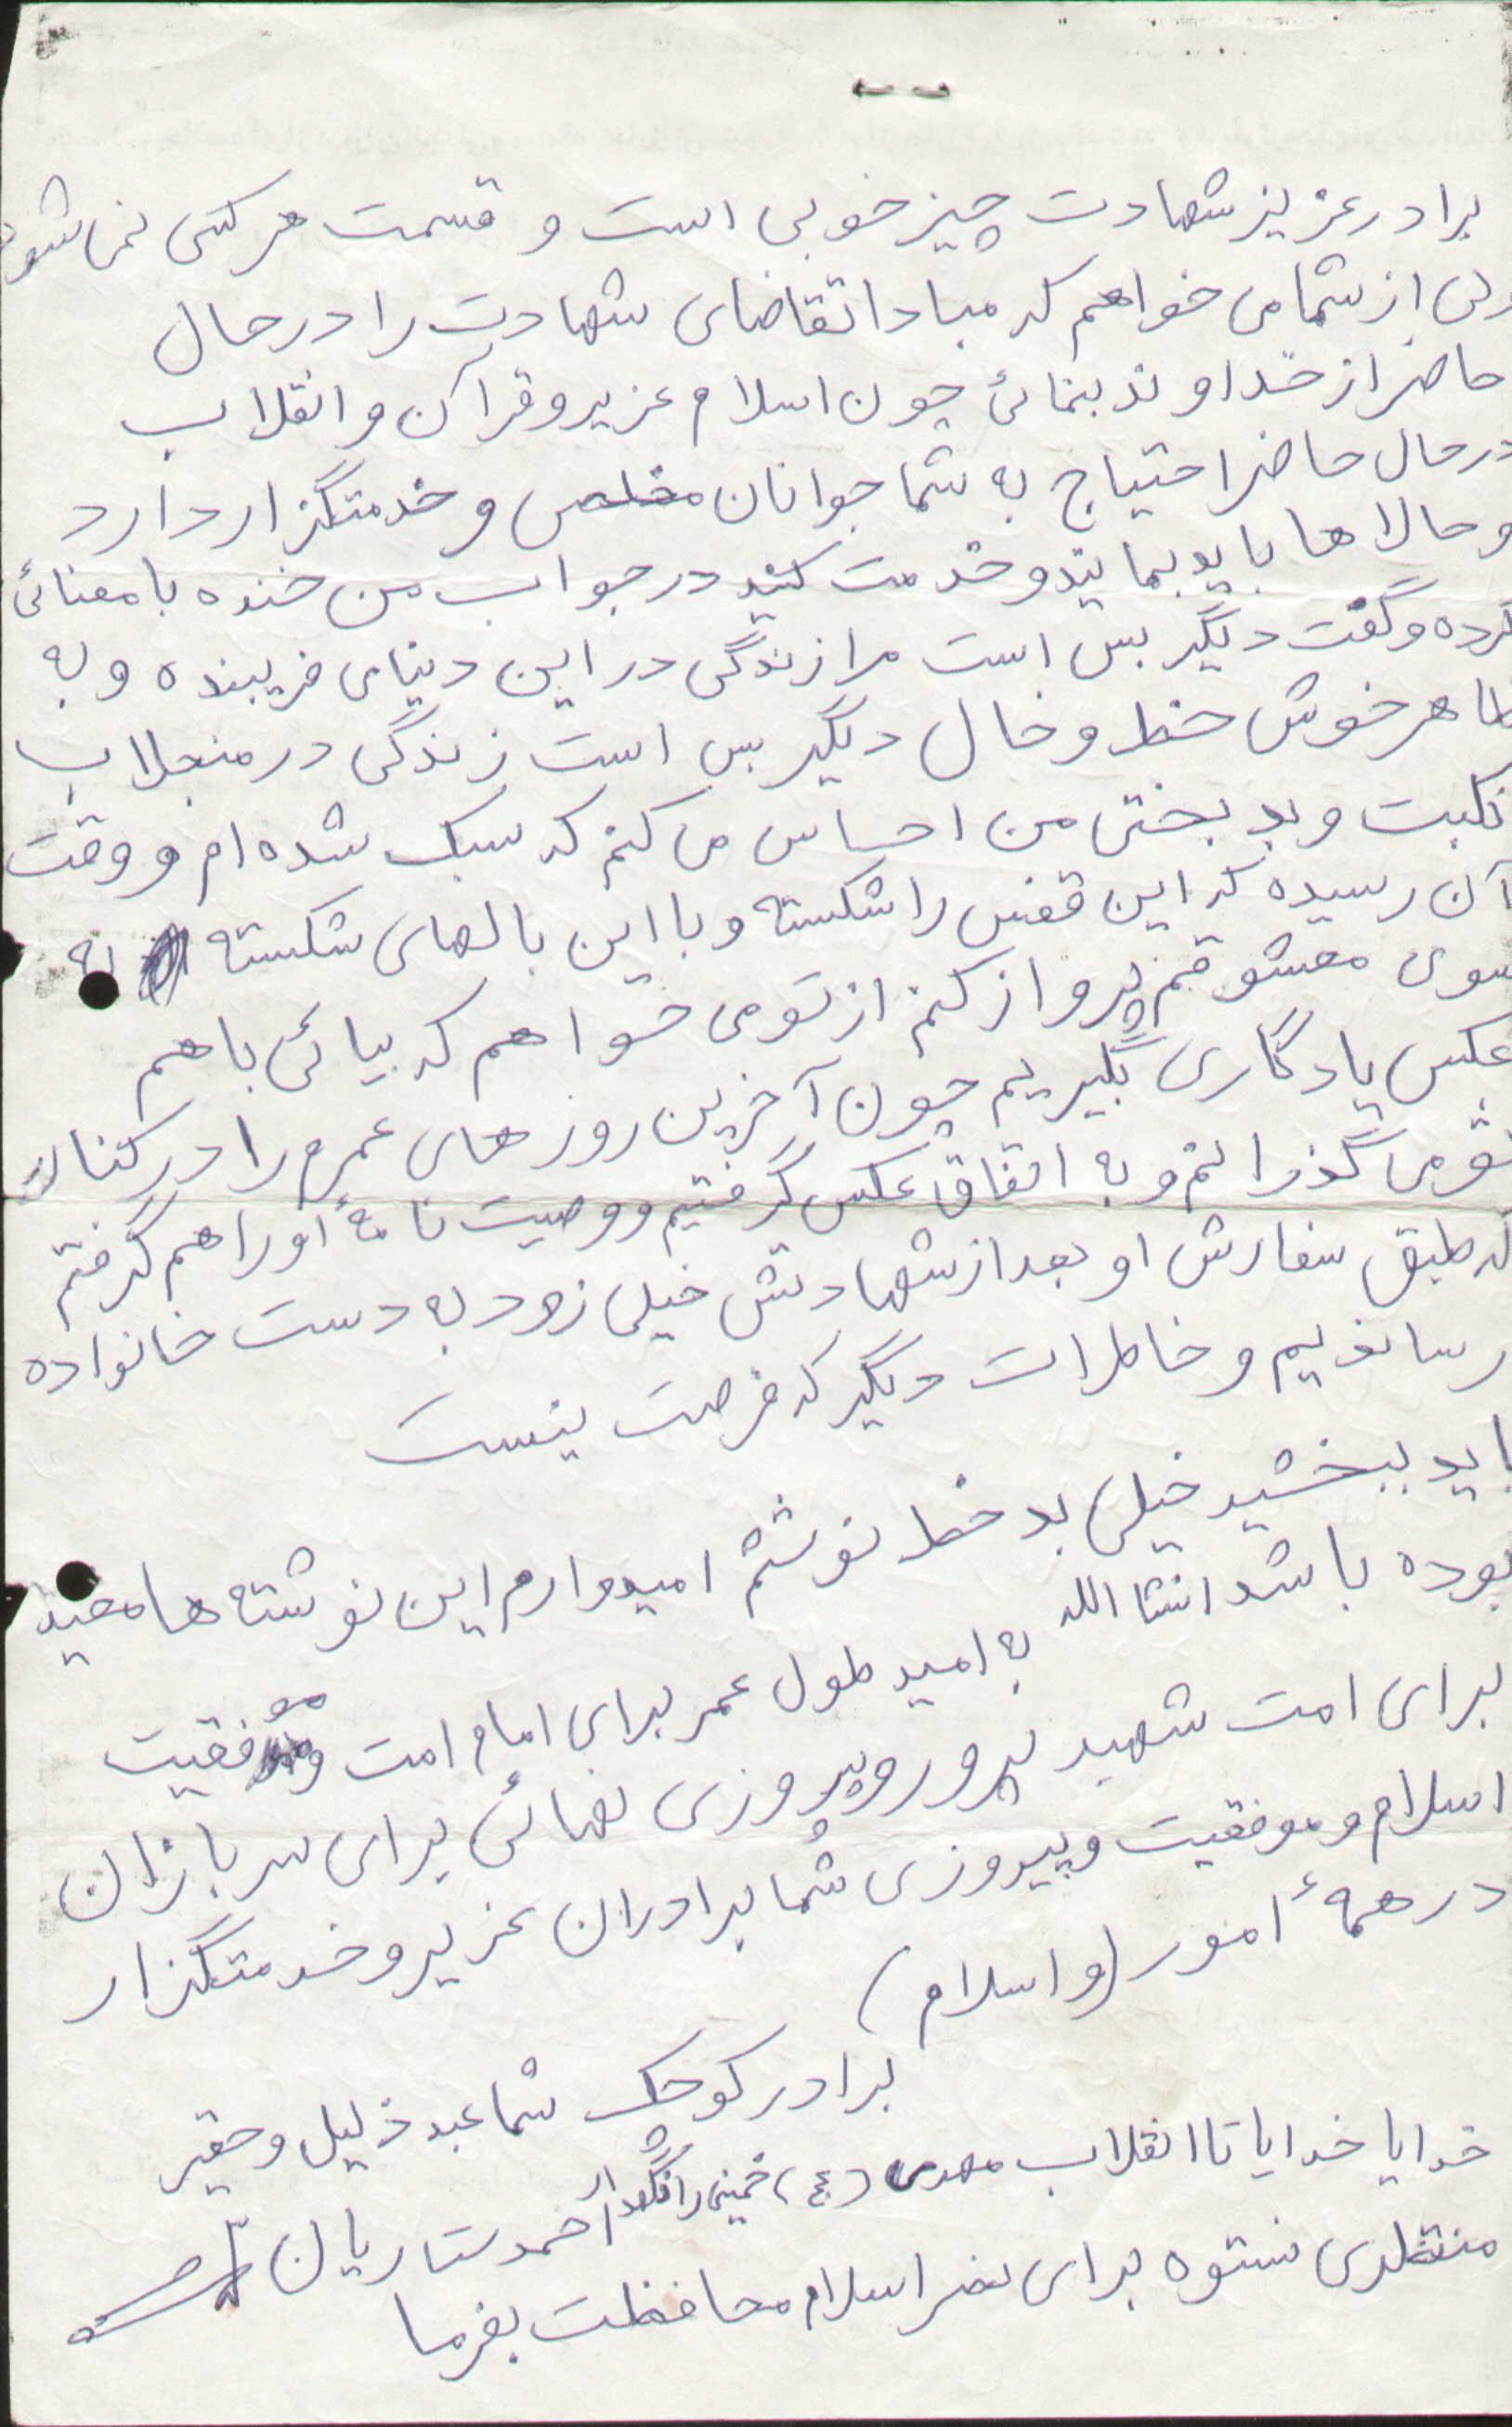 برادر عزیز شهادت چیز خوبی است و قسمت هر کسی نمی شود
ولی از شما می خواهم که مبادا تقاضای شهادت را در حال
حاضر از خداوند بنمائی چون اسلام عزیز و قرآن و انقلاب
در حال حاضر احتیاج به شما جوانان مخلص و خدمتگزار دارد
و حالا ها باید بمانید و خدمت کنید در جواب من خنده با معنائی
کرده و گفت دیگر بس است مرا زندگی در این دنیای فریبنده و به
ظاهر خوش خط و خال دیگر بس است زندگی در منجلاب
نکبت و بدبختی من احساس می کنم که سبک شده ام و وقت
آن رسیده که این قفس را شکسته و با این بالهای شکسته به
سوی معشوقم پرواز کنم از تو می خواهم که بیائی با هم
عکس یادگاری بگیریم چون آخرین روزهای عمرم را در کنار
تو می گذرانم و به اتفاق عکس گرفتیم و وصیت نامهٔ او را هم گرفتم
که طبق سفارش او بعد از شهادتش خیلی زود به دست خانواده
رساندیم و خاطرات دیگر که فرصت نیست
باید ببخشید خیلی بد خط نوشتم امیدوارم این نوشته ها مفید
بوده باشد انشا الله
به امید طول عمر برای امام امت و موفقیت
برای امت شهید پرور و پیروزی نهائی برای سربازان
اسلام و موفقیت و پیروزی شما برادران عزیز و خدمتگزار
در همهٔ امور (و اسلام)
برادر کوچک شما عبد ذلیل و حقیر
خدایا خدایا تا انقلاب مهدی (ع) خمینی را نگهدار
احمد ستاریان
منتظری نستوه برای نصر اسلام محافظت بفرما